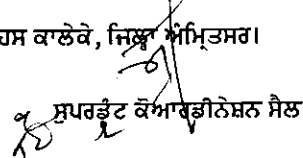 ਹਸ ਕਾਲੇਕੇ, ਜਿਲ੍ਹਾ ਅੰਮ੍ਰਿਤਸਰ।
ਸੁਪਰਡੰਟ ਕੋਆਰਡੀਨੇਸ਼ਨ ਸੈਲ